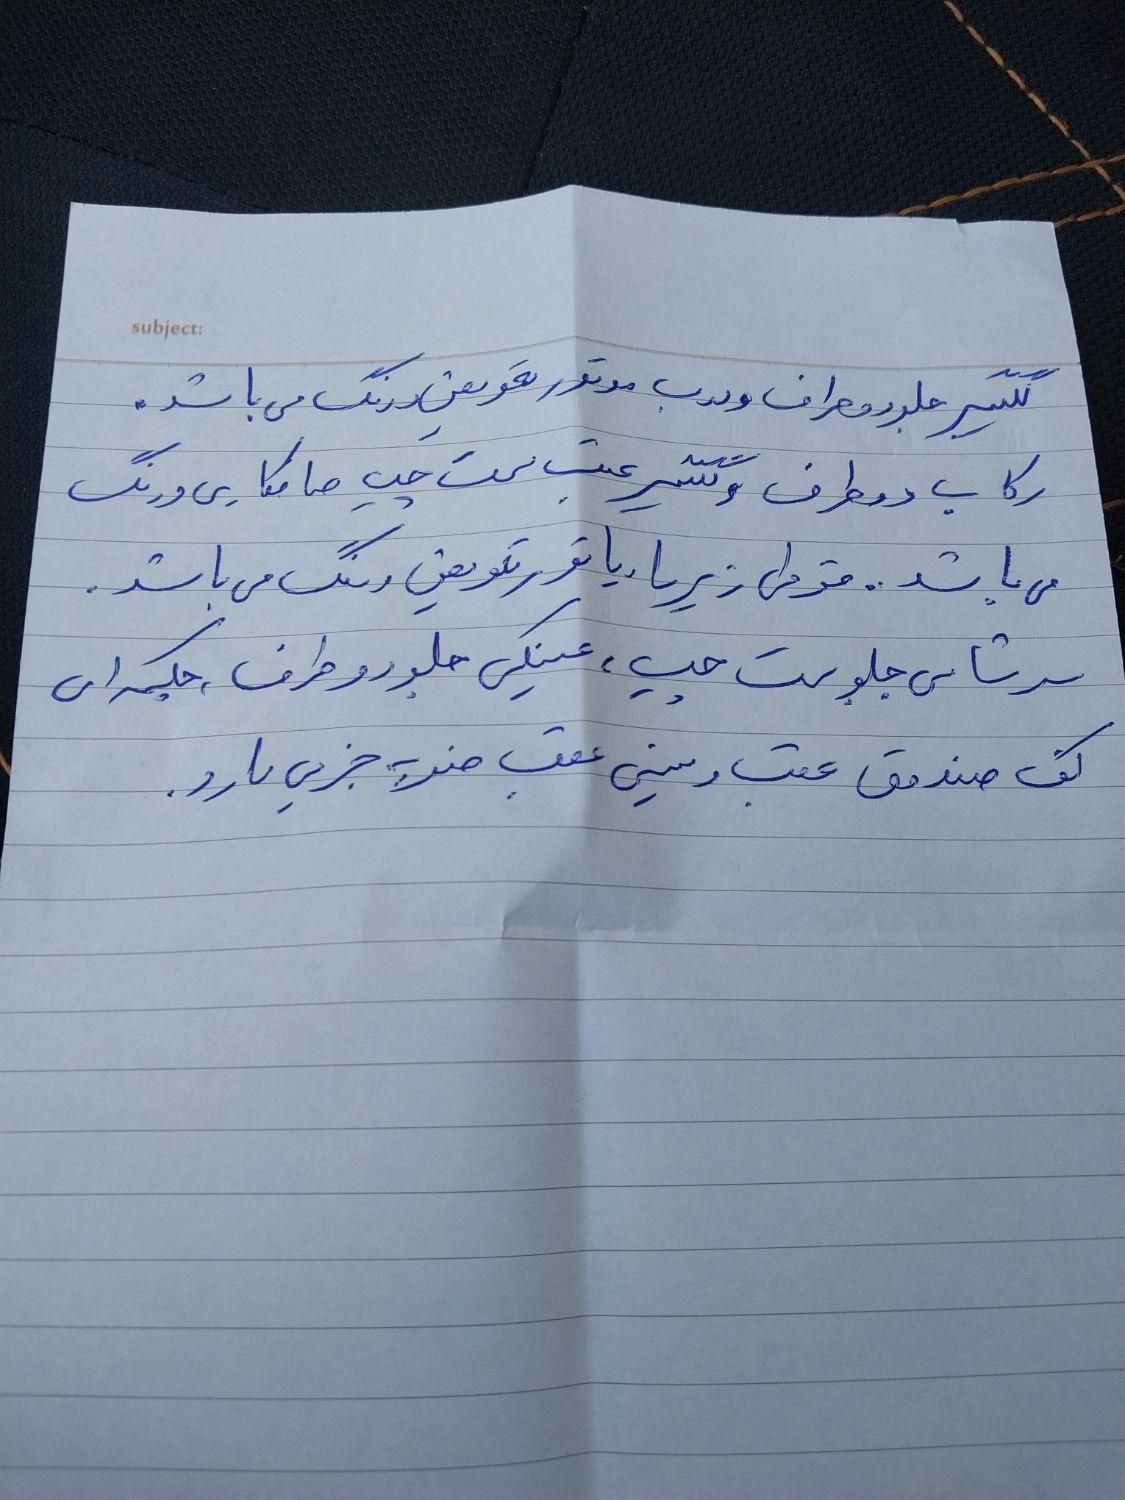 subject:
گلگیر جلو دو طرف و درب موتور تعویض و رنگ می باشد.
رکاب دو طرف و گلگیر عقب سمت چپ صافکاری و رنگ
می باشد.. قوطی زیر رادیاتور تعویض و رنگ می باشد.
سرشاسی جلو سمت چپ، عینکی جلو دو طرف، چکمه ای
کف صندوق عقب و سینی عقب ضربه جزیی دارد.